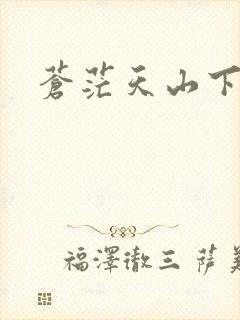 蒼茫天山下
福澤徹三 萨